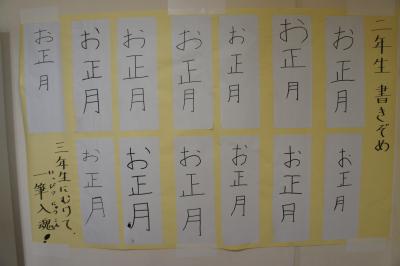 二年生 書きぞめ
お正月
お正月
お正月
お正月
お正月
お正月
お正月
お正月
お正月
お正月
お正月
お正月
お正月
三年生にむけて、
一筆入魂!